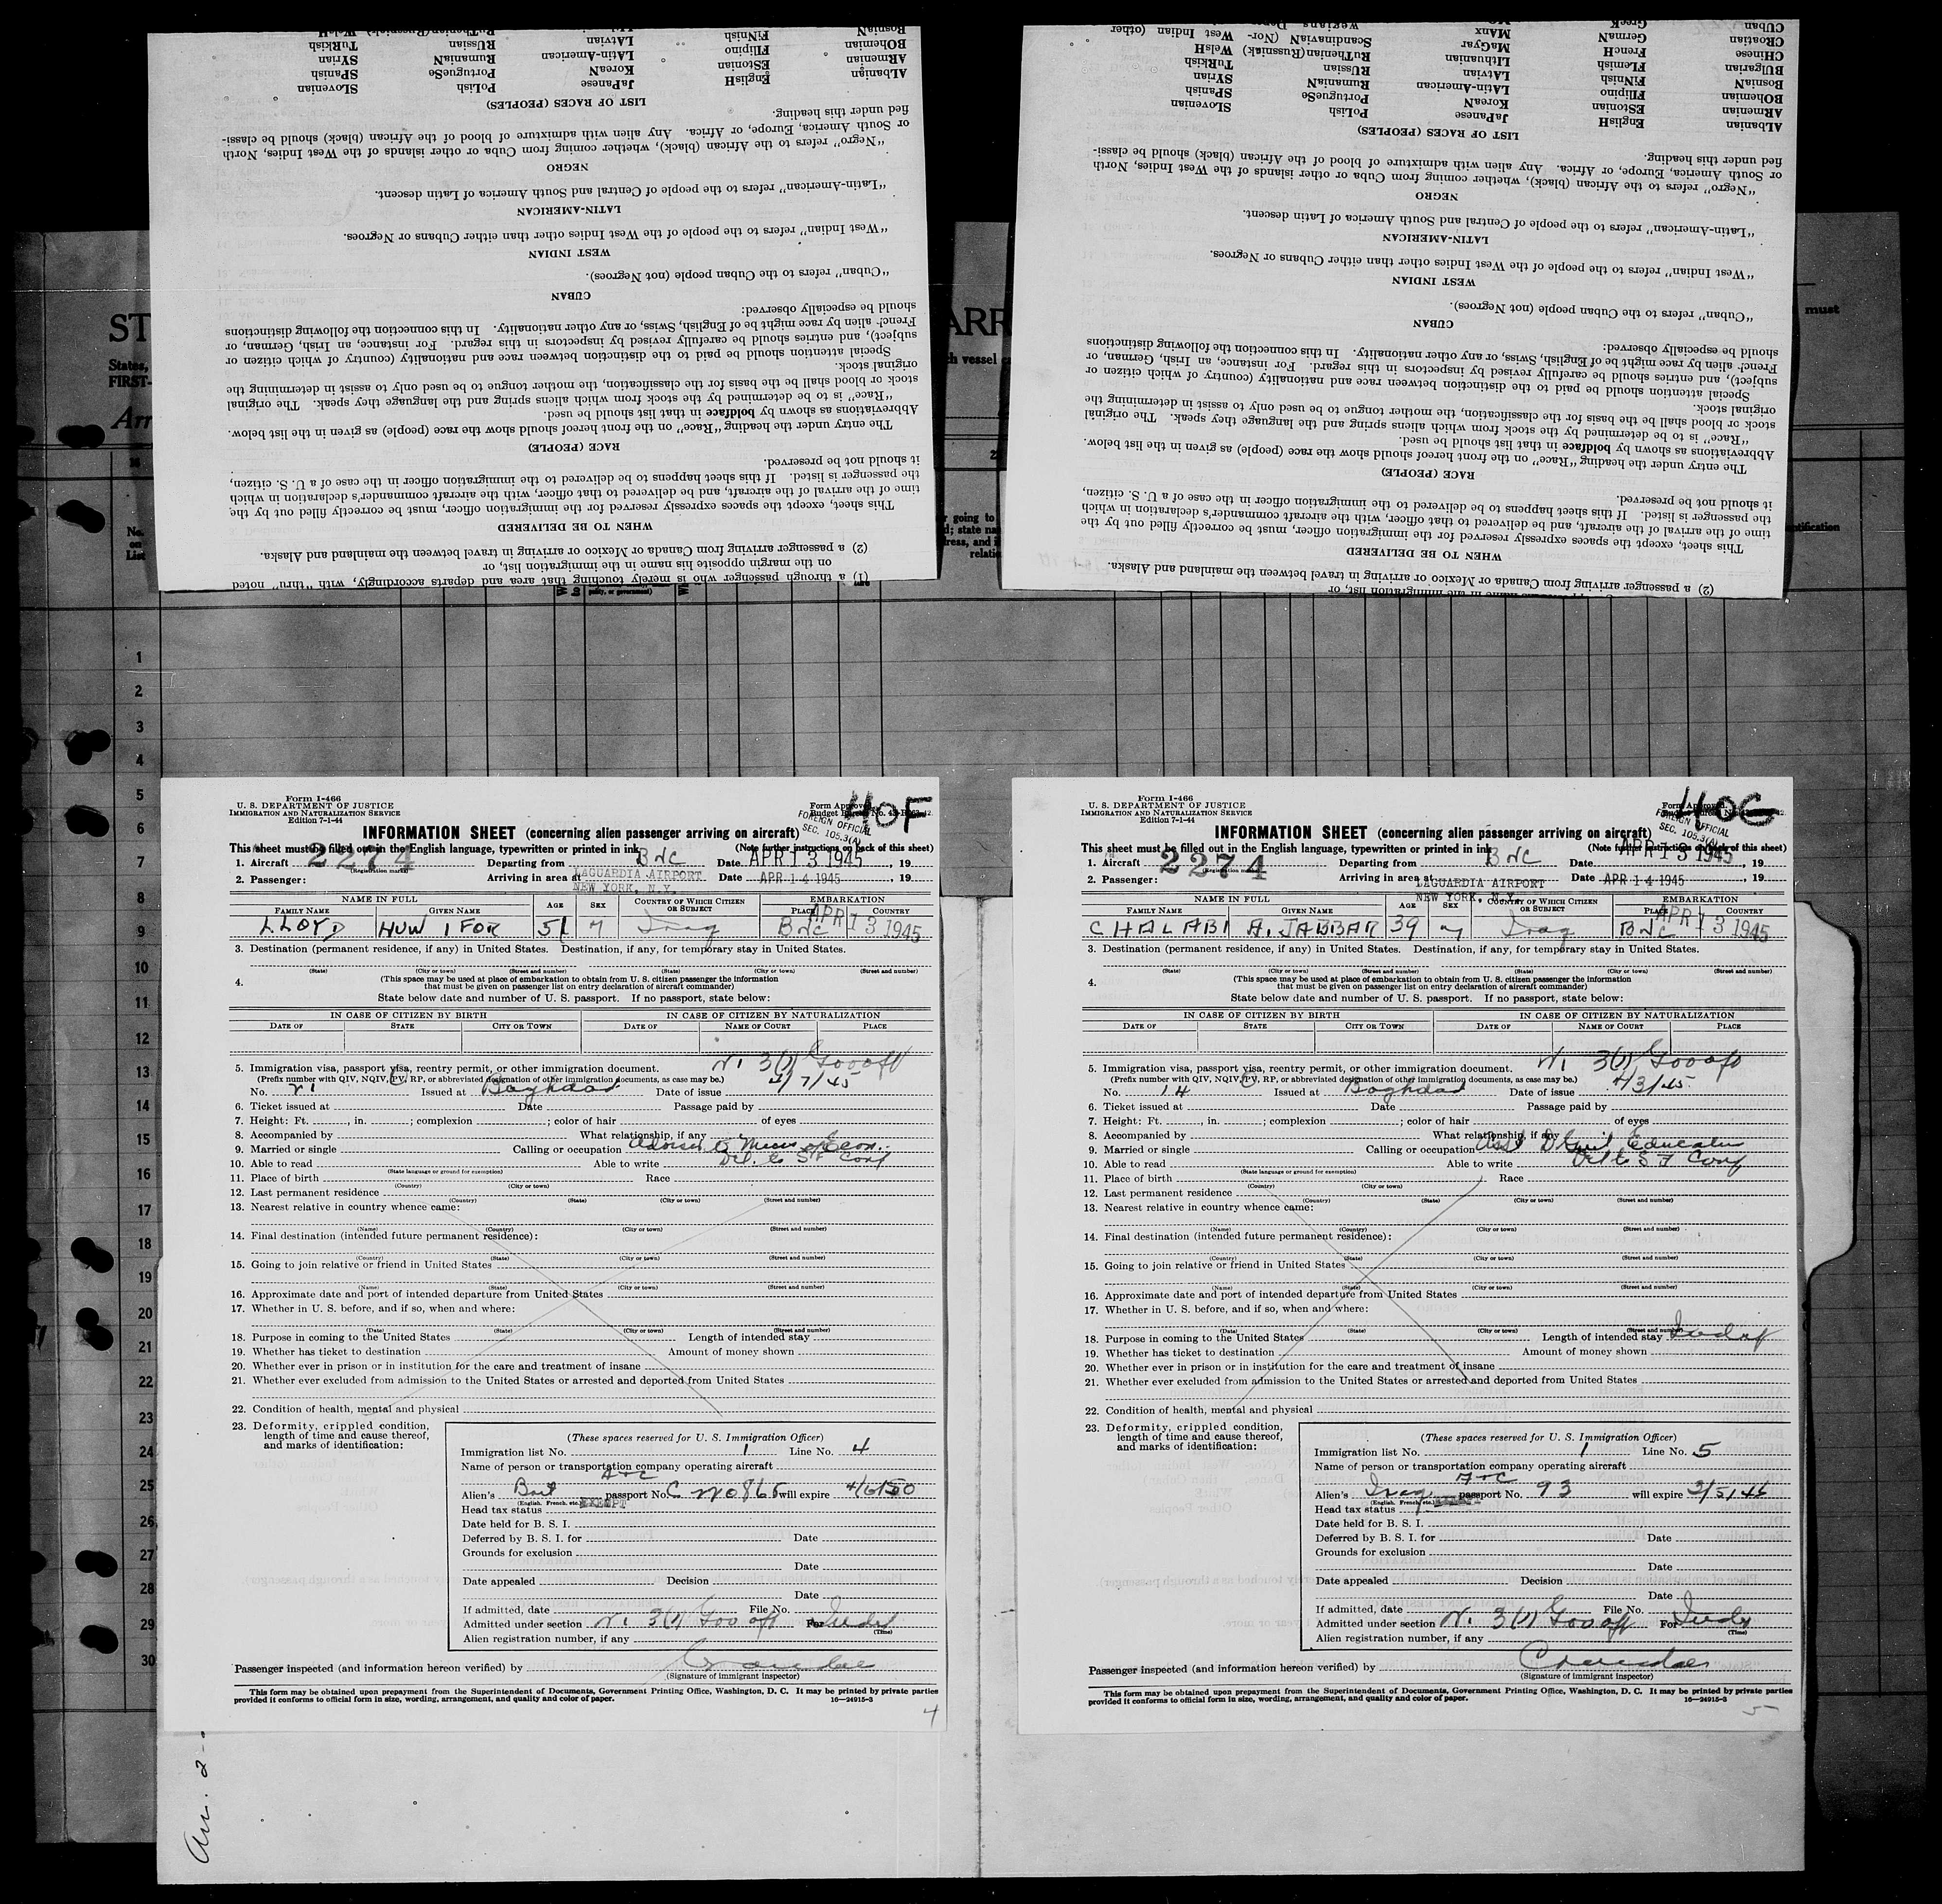 BOsniaN
FiNnish
LAtvian
RUssian
TuRkish
BOHemian
FIlipino
LAtin-American
RumaniaN
SYrian
ARMenian
EStonian
KoreaN
PortugueSe
SPanish
ALbanian
EngliSH
JaPanese
PoLish
SLOvenian
LIST OF RACES (PEOPLES)
fied under this heading.
or South America, Europe, or Africa. Any alien with admixture of blood of the African (black) should be classi-
"Negro" refers to the African (black), whether coming from Cuba or other islands of the West Indies, North
NEGRO
"Latin-American" refers to the people of Central and South America of Latin descent.
LATIN-AMERICAN
"West Indian" refers to the people of the West Indies other than either Cubans or Negroes.
WEST INDIAN
"Cuban" refers to the Cuban people (not Negroes).
CUBAN
should be especially observed:
French alien by race might be of English, Swiss, or any other nationality. In this connection the following distinctions
subject), and entries should be carefully revised by inspectors in this regard. For instance, an Irish, German, or
Special attention should be paid to the distinction between race and nationality (country of which citizen or
original stock.
stock or blood shall be the basis for the classification, the mother tongue to be used only to assist in determining the
"Race" is to be determined by the stock from which aliens spring and the language they speak. The original
Abbreviations as shown by boldface in that list should be used.
The entry under the heading "Race" on the front hereof should show the race (people) as given in the list below.
RACE (PEOPLE)
it should not be preserved.
the passenger is listed. If this sheet happens to be delivered to the immigration officer in the case of a U. S. citizen,
time of the arrival of the aircraft, and be delivered to that officer, with the aircraft commander's declaration in which
This sheet, except the spaces expressly reserved for the immigration officer, must be correctly filled out by the
WHEN TO BE DELIVERED
(2) a passenger arriving from Canada or Mexico or arriving in travel between the mainland and Alaska.
on the margin opposite his name in the immigration list, or
(1) a through passenger who is merely touching that area and departs accordingly, with "thru" noted
CUban
GreeK
CROatian
GermaN
MAnx
CHinese
FrencH
MaGyar
ScandinaviaN (Nor-
West Indian (other
BULgarian
FLemish
LIthuanian
RuTHenian (Russniak)
WelsH
BOsniaN
FiNnish
LAtvian
RUssian
TuRkish
BOHemian
FIlipino
LAtin-American
RumaniaN
SYrian
ARMenian
EStonian
KoreaN
PortugueSe
SPanish
ALbanian
EngliSH
JaPanese
PoLish
SLOvenian
LIST OF RACES (PEOPLES)
fied under this heading.
or South America, Europe, or Africa. Any alien with admixture of blood of the African (black) should be classi-
"Negro" refers to the African (black), whether coming from Cuba or other islands of the West Indies, North
NEGRO
"Latin-American" refers to the people of Central and South America of Latin descent.
LATIN-AMERICAN
"West Indian" refers to the people of the West Indies other than either Cubans or Negroes.
WEST INDIAN
"Cuban" refers to the Cuban people (not Negroes).
CUBAN
should be especially observed:
French alien by race might be of English, Swiss, or any other nationality. In this connection the following distinctions
subject), and entries should be carefully revised by inspectors in this regard. For instance, an Irish, German, or
Special attention should be paid to the distinction between race and nationality (country of which citizen or
original stock.
stock or blood shall be the basis for the classification, the mother tongue to be used only to assist in determining the
"Race" is to be determined by the stock from which aliens spring and the language they speak. The original
Abbreviations as shown by boldface in that list should be used.
The entry under the heading "Race" on the front hereof should show the race (people) as given in the list below.
RACE (PEOPLE)
it should not be preserved.
the passenger is listed. If this sheet happens to be delivered to the immigration officer in the case of a U. S. citizen,
time of the arrival of the aircraft, and be delivered to that officer, with the aircraft commander's declaration in which
This sheet, except the spaces expressly reserved for the immigration officer, must be correctly filled out by the
WHEN TO BE DELIVERED
(2) a passenger arriving from Canada or Mexico or arriving in travel between the mainland and Alaska.
ST
ARR
must
States,
FIRST-
h vessel
No.
on
List
1
2
3
4
5
6
7
8
9
10
11
12
13
14
15
16
17
18
19
20
21
22
23
24
25
26
27
28
29
30
Form I-466
U. S. DEPARTMENT OF JUSTICE
IMMIGRATION AND NATURALIZATION SERVICE
Edition 7-1-44
Form Approved.
40F
FOREIGN OFFICIAL
SEC. 105.3(A)
INFORMATION SHEET (concerning alien passenger arriving on aircraft)
This sheet must be filled out in the English language, typewritten or printed in ink (Note further instructions on back of this sheet)
1. Aircraft 2274 (Registration marks) Departing from BNC Date APR 13 1945, 19
2. Passenger: Arriving in area at LAGUARDIA AIRPORT NEW YORK, N.Y. Date APR 14 1945, 19
NAME IN FULL AGE SEX COUNTRY OF WHICH CITIZEN OR SUBJECT EMBARKATION
FAMILY NAME GIVEN NAME PLACE COUNTRY
LLOYD HUW IFOR 51 M Iraq BNC APR 13 1945
3. Destination (permanent residence, if any) in United States. Destination, if any, for temporary stay in United States.
(State) (City or town) (Street and number) (State) (City or town) (Street and number)
4. (This space may be used at place of embarkation to obtain from U. S. citizen passenger the information
that must be given on passenger list on entry declaration of aircraft commander)
State below date and number of U. S. passport. If no passport, state below:
IN CASE OF CITIZEN BY BIRTH IN CASE OF CITIZEN BY NATURALIZATION
DATE OF STATE CITY OR TOWN DATE OF NAME OF COURT PLACE
5. Immigration visa, passport visa, reentry permit, or other immigration document. 3(1) Gov off
(Prefix number with QIV, NQIV, PV, RP, or abbreviated designation of other immigration documents, as case may be.)
No. Issued at Baghdad Date of issue 4/7/45
6. Ticket issued at Date Passage paid by
7. Height: Ft. , in. ; complexion ; color of hair of eyes
8. Accompanied by What relationship, if any
9. Married or single Calling or occupation Adviser to Econ.
10. Able to read (State language or ground for exemption) Able to write Del. to SF Conf
11. Place of birth (Country) (City or town) Race
12. Last permanent residence (Country) (State) (City or town) (Street and number)
13. Nearest relative in country whence came:
(Name) (Country) (City or town) (Street and number)
14. Final destination (intended future permanent residence):
(Country) (State) (City or town) (Street and number)
15. Going to join relative or friend in United States
(Name) (State) (City or town) (Street and number)
16. Approximate date and port of intended departure from United States
17. Whether in U. S. before, and if so, when and where:
(Date) (State) (City or town) (Street and number)
18. Purpose in coming to the United States Length of intended stay
19. Whether has ticket to destination Amount of money shown
20. Whether ever in prison or in institution for the care and treatment of insane
21. Whether ever excluded from admission to the United States or arrested and deported from United States
22. Condition of health, mental and physical
23. Deformity, crippled condition,
length of time and cause thereof,
and marks of identification:
(These spaces reserved for U. S. Immigration Officer)
Immigration list No. 1 Line No. 4
Name of person or transportation company operating aircraft
Alien's Brit (English, French, etc.) passport No. will expire
Head tax status EXEMPT
Date held for B. S. I.
Deferred by B. S. I. for Date
Grounds for exclusion
Date
Date appealed Decision
Date
If admitted, date File No.
Admitted under section 3(1) Gov off For Indef (Time)
Alien registration number, if any
Passenger inspected (and information hereon verified) by
(Signature of immigrant inspector)
This form may be obtained upon prepayment from the Superintendent of Documents, Government Printing Office, Washington, D. C. It may be printed by private parties
provided it conforms to official form in size, wording, arrangement, and quality and color of paper. 16—24915-3
4
Form I-466
U. S. DEPARTMENT OF JUSTICE
IMMIGRATION AND NATURALIZATION SERVICE
Edition 7-1-44
Form Approved.
40G
FOREIGN OFFICIAL
SEC. 105.3(A)
INFORMATION SHEET (concerning alien passenger arriving on aircraft)
This sheet must be filled out in the English language, typewritten or printed in ink (Note further instructions on back of this sheet)
1. Aircraft 2274 (Registration marks) Departing from BNC Date APR 13 1945, 19
2. Passenger: Arriving in area at LAGUARDIA AIRPORT NEW YORK, N.Y. Date APR 14 1945, 19
NAME IN FULL AGE SEX COUNTRY OF WHICH CITIZEN OR SUBJECT EMBARKATION
FAMILY NAME GIVEN NAME PLACE COUNTRY
CHALABI A. JABBAR 39 M Iraq BNC APR 13 1945
3. Destination (permanent residence, if any) in United States. Destination, if any, for temporary stay in United States.
(State) (City or town) (Street and number) (State) (City or town) (Street and number)
4. (This space may be used at place of embarkation to obtain from U. S. citizen passenger the information
that must be given on passenger list on entry declaration of aircraft commander)
State below date and number of U. S. passport. If no passport, state below:
IN CASE OF CITIZEN BY BIRTH IN CASE OF CITIZEN BY NATURALIZATION
DATE OF STATE CITY OR TOWN DATE OF NAME OF COURT PLACE
5. Immigration visa, passport visa, reentry permit, or other immigration document. 3(1) Gov off
(Prefix number with QIV, NQIV, PV, RP, or abbreviated designation of other immigration documents, as case may be.)
No. 14 Issued at Baghdad Date of issue 4/3/45
6. Ticket issued at Date Passage paid by
7. Height: Ft. , in. ; complexion ; color of hair of eyes
8. Accompanied by What relationship, if any
9. Married or single Calling or occupation Asst D Genl Education
10. Able to read (State language or ground for exemption) Able to write Del to SF Conf
11. Place of birth (Country) (City or town) Race
12. Last permanent residence (Country) (State) (City or town) (Street and number)
13. Nearest relative in country whence came:
(Name) (Country) (City or town) (Street and number)
14. Final destination (intended future permanent residence):
(Country) (State) (City or town) (Street and number)
15. Going to join relative or friend in United States
(Name) (State) (City or town) (Street and number)
16. Approximate date and port of intended departure from United States
17. Whether in U. S. before, and if so, when and where:
(Date) (State) (City or town) (Street and number)
18. Purpose in coming to the United States Length of intended stay Indef
19. Whether has ticket to destination Amount of money shown
20. Whether ever in prison or in institution for the care and treatment of insane
21. Whether ever excluded from admission to the United States or arrested and deported from United States
22. Condition of health, mental and physical
23. Deformity, crippled condition,
length of time and cause thereof,
and marks of identification:
(These spaces reserved for U. S. Immigration Officer)
Immigration list No. 1 Line No. 5
Name of person or transportation company operating aircraft
Alien's Iraq (English, French, etc.) passport No. 93 will expire
Head tax status
Date held for B. S. I.
Deferred by B. S. I. for Date
Grounds for exclusion
Date
Date appealed Decision
Date
If admitted, date File No.
Admitted under section 3(1) Gov off For Indef (Time)
Alien registration number, if any
Passenger inspected (and information hereon verified) by
(Signature of immigrant inspector)
This form may be obtained upon prepayment from the Superintendent of Documents, Government Printing Office, Washington, D. C. It may be printed by private parties
provided it conforms to official form in size, wording, arrangement, and quality and color of paper. 16—24915-3
5